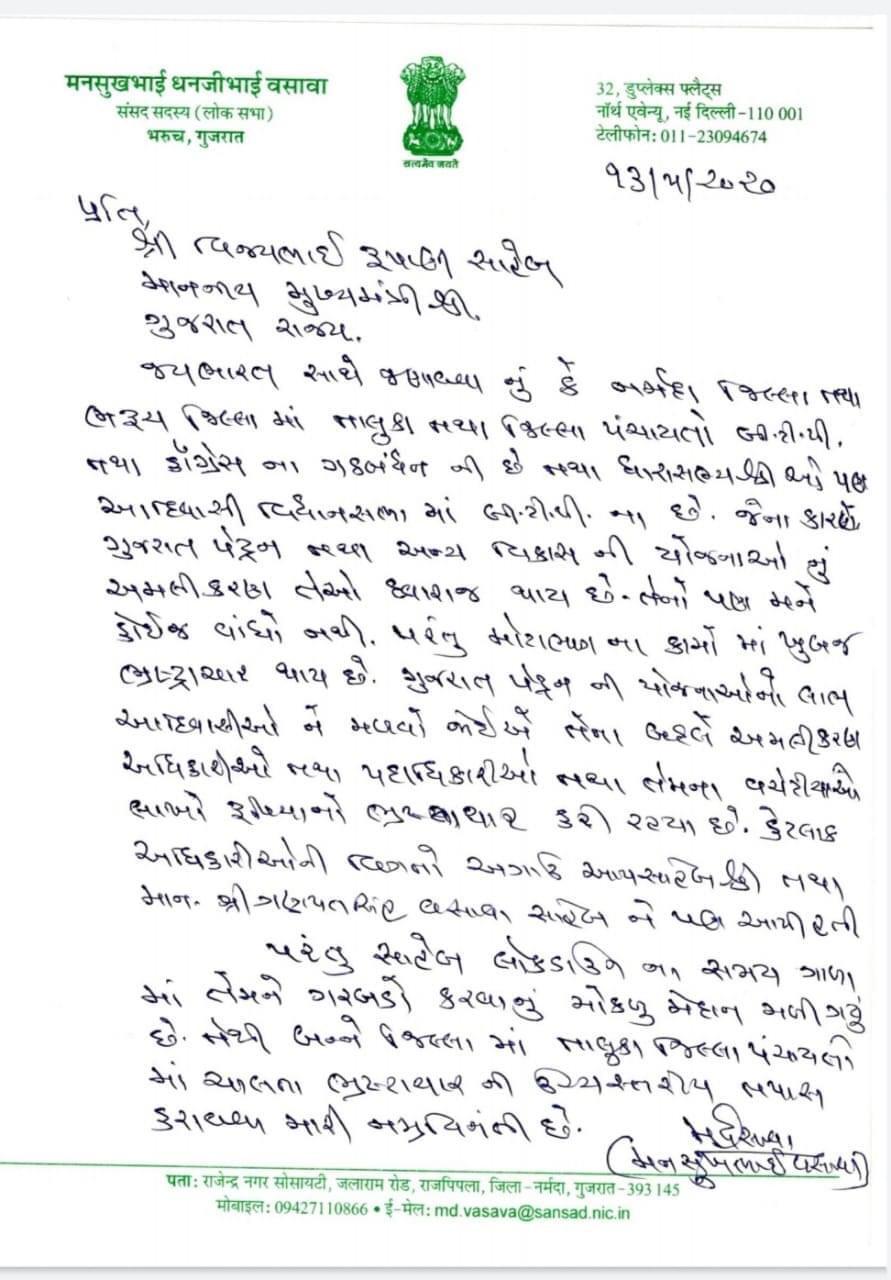 मनसुखभाई धनजीभाई वसावा
संसद सदस्य (लोक सभा)
भरुच, गुजरात
सत्यमेव जयते
32, डुप्लेक्स फ्लैट्स
नॉर्थ एवेन्यू, नई दिल्ली-110 001
टेलीफोन: 011-23094674
૧૩/૫/૨૦૨૦
પ્રતિ,
શ્રી વિજયભાઈ રૂપાણી સાહેબ
માનનીય મુખ્યમંત્રીશ્રી.
ગુજરાત રાજ્ય.
જયભારત સાથે જણાવવા નું કે નર્મદા જિલ્લા તથા
ભરૂચ જિલ્લા માં તાલુકા તથા જિલ્લા પંચાયતો બી.ટી.પી.
તથા કોંગ્રેસ ના ગઠબંધન ની છે તથા ધારાસભ્યશ્રી ઓ પણ
આદિવાસી વિધાનસભા માં બી.ટી.પી. ના છે. જેના કારણે
ગુજરાત પેટ્રન તથા અન્ય વિકાસ ની યોજનાઓ નું
અમલીકરણ તેઓ દ્વારાજ થાય છે. તેનો પણ મને
કોઈજ વાંધો નથી. પરંતુ મોટાભાગ ના કામો માં ખુબજ
ભ્રષ્ટ્રાચાર થાય છે. ગુજરાત પેટ્રન ની યોજનાઓનો લાભ
આદિવાસીઓ ને મળવો જોઈએ તેના બદલે અમલીકરણ
અધિકારીઓ તથા પદાધિકારીઓ તથા તેમના વચેટીયાઓ
લાખો રૂપિયાનો ભ્રષ્ટાચાર કરી રહ્યા છે. કેટલાક
અધિકારીઓની વિગતો અગાઉ આપસાહેબશ્રી તથા
માન. શ્રી ગણપતસિંહ વસાવા સાહેબ ને પણ આપી હતી
પરંતુ સાહેબ લોકડાઉન ના સમય ગાળા
માં તેમને ગરબડો કરવાનું મોકળુ મેદાન મળી ગયું
છે. તેથી બન્ને જિલ્લા માં તાલુકા જિલ્લા પંચાયતો
માં ચાલતા ભ્રષ્ટાચાર ની ઉચ્ચસ્તરીય તપાસ
કરાવવા મારી નમ્ર વિનંતી છે.
(મનસુખભાઈ વસાવા)
पता: राजेन्द्र नगर सोसायटी, जलाराम रोड, राजपिपला, जिला-नर्मदा, गुजरात-393 145
मोबाइल: 09427110866 • ई-मेल: md.vasava@sansad.nic.in